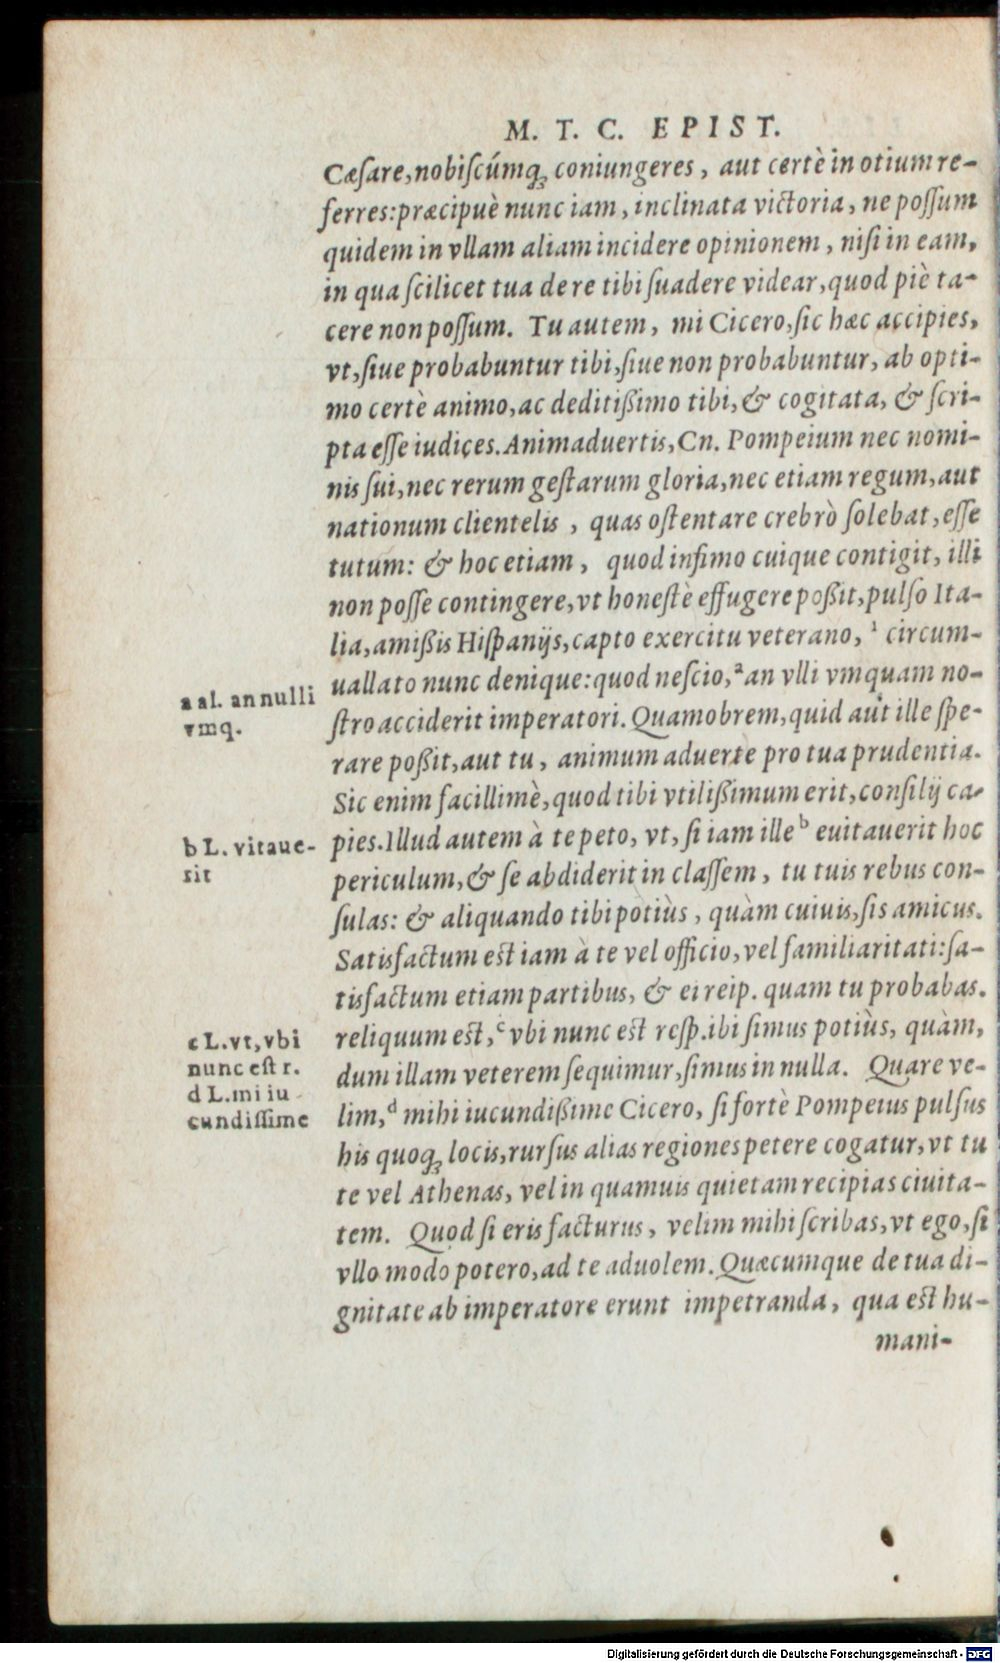 M. T. C. EPIST.
Cæſare, nobiſcúmq; coniungeres, aut certè in otium re-
ferres: præcipuè nunc iam, inclinata victoria, ne poſſum
quidem in vllam aliam incidere opinionem, niſi in eam,
in qua ſcilicet tua de re tibi ſuadere videar, quod piè ta-
cere non poſſum. Tu autem, mi Cicero, ſic hæc accipies,
vt, ſiue probabuntur tibi, ſiue non probabuntur, ab opti-
mo certè animo, ac deditißimo tibi, & cogitata, & ſcri-
pta eſſe iudices. Animaduertis, Cn. Pompeium nec nomi-
nis ſui, nec rerum geſtarum gloria, nec etiam regum, aut
nationum clientelis, quas oſtentare crebrò ſolebat, eſſe
tutum: & hoc etiam, quod infimo cuique contigit, illi
non poſſe contingere, vt honeſtè effugere poßit, pulſo Ita-
lia, amißis Hiſpanijs, capto exercitu veterano, ¹ circum-
uallato nunc denique: quod neſcio, ᵃ an vlli vmquam no-
a al. an nulli
vmq.
ſtro acciderit imperatori. Quamobrem, quid aut ille ſpe-
rare poßit, aut tu, animum aduerte pro tua prudentia.
Sic enim facillimè, quod tibi vtilißimum erit, conſilij ca-
pies. Illud autem à te peto, vt, ſi iam ille ᵇ euitauerit hoc
b L. vitaue-
rit
periculum, & ſe abdiderit in claſſem, tu tuis rebus con-
ſulas: & aliquando tibi potiùs, quàm cuiuis, ſis amicus.
Satisfactum eſt iam à te vel officio, vel familiaritati: ſa-
tisfactum etiam partibus, & ei reip. quam tu probabas.
reliquum eſt, ᶜ vbi nunc eſt reſp. ibi ſimus potiùs, quàm,
c L. vt, vbi
nunc eſt r.
dum illam veterem ſequimur, ſimus in nulla. Quare ve-
lim, ᵈ mihi iucundißime Cicero, ſi fortè Pompeius pulſus
d L. mi iu
cundiſſime
his quoq; locis, rurſus alias regiones petere cogatur, vt tu
te vel Athenas, vel in quamuis quietam recipias ciuita-
tem. Quod ſi eris facturus, velim mihi ſcribas, vt ego, ſi
vllo modo potero, ad te aduolem. Quæcumque de tua di-
gnitate ab imperatore erunt impetranda, qua eſt hu-
mani-
Digitalisierung gefördert durch die Deutsche Forschungsgemeinschaft - DFG